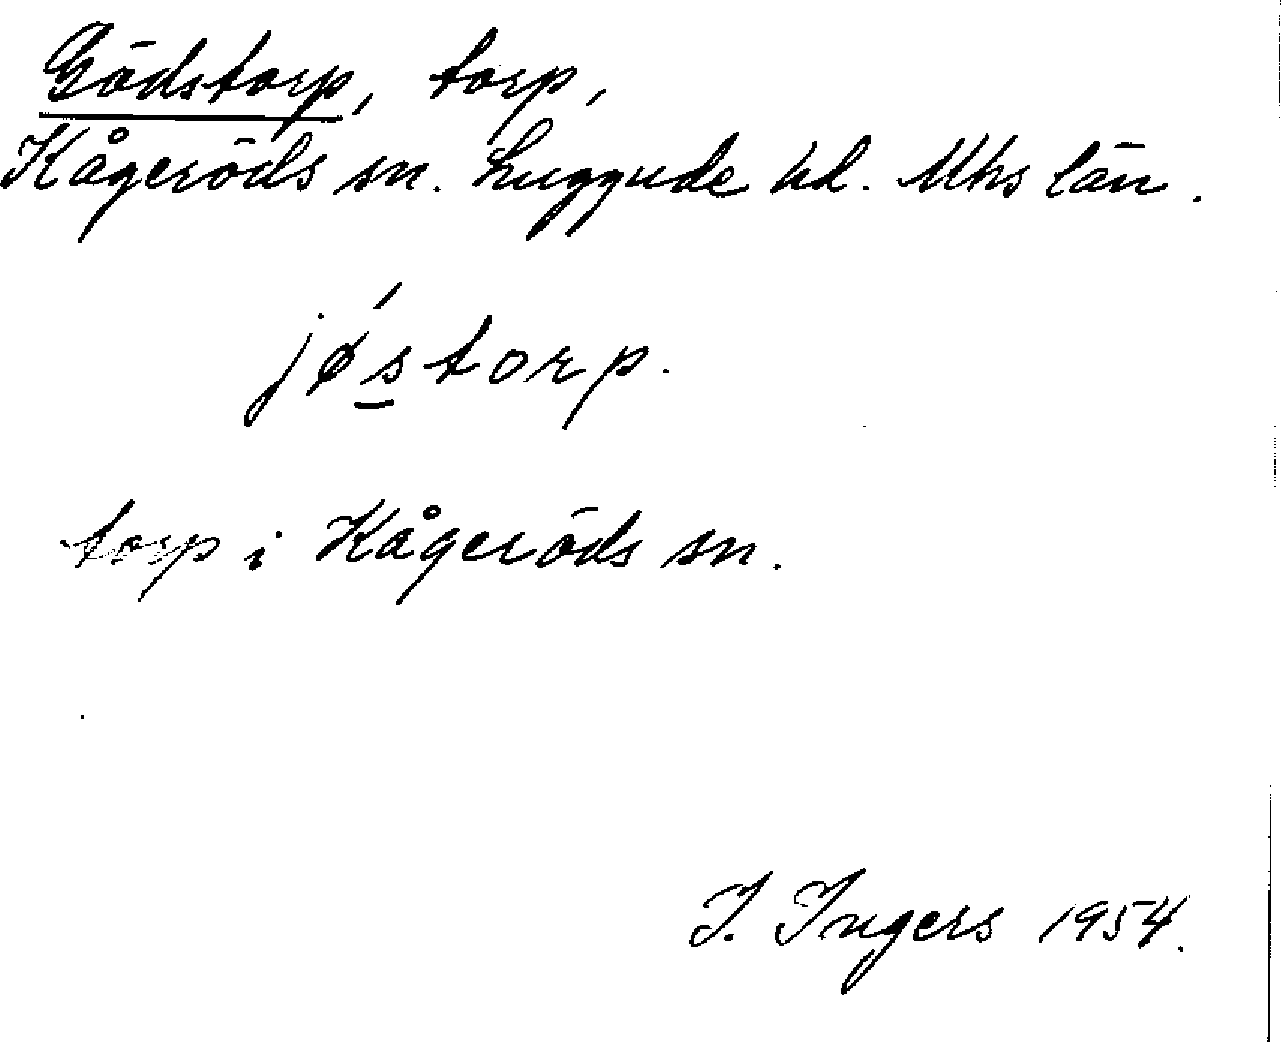 Gödstorp, torp,
Kågeröds sn. Luggude hd. Mhs län.
jǿstorp.
torp i Kågeröds sn.
I. Ingers 1954.